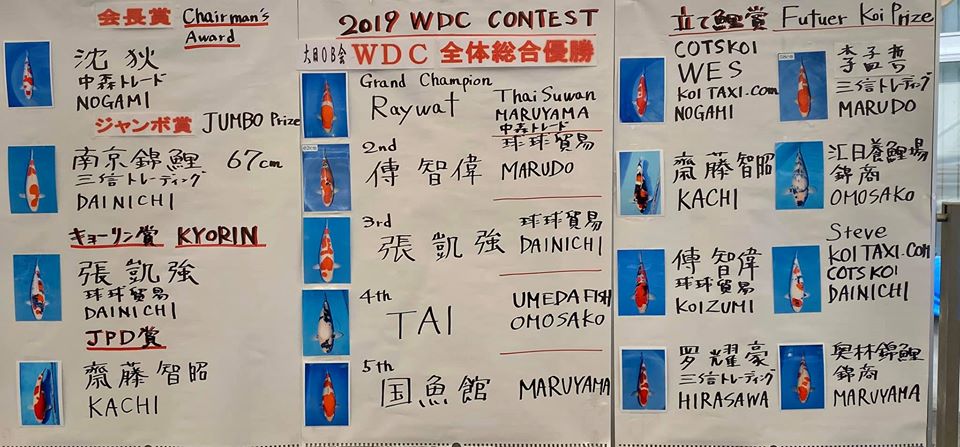 会長賞 Chairman's
Award
沈 狄
中森トレード
NOGAMI
ジャンボ賞 JUMBO Prize
南京錦鯉 67cm
三信トレーディング
DAINICHI
キョーリン賞 KYORIN
張 凱 強
球球貿易
DAINICHI
JPD賞
齋藤 智昭
KACHI
2019 WDC CONTEST
大日OB会 WDC 全体総合優勝
Grand Champion
Raywat Thai Suwan
MARUYAMA
中森トレード
2nd 球球貿易
傳 智偉 MARUDO
3rd 球球貿易
張 凱 強 DAINICHI
4th UMEDA FISH
TAI OMOSAKO
5th
国魚館 MARUYAMA
立て鯉賞 Futuer Koi Prize
COTSKOI
WES
KOI TAXI.com
NOGAMI
三信トレーディング
MARUDO
齋藤智昭
KACHI
江日養鯉場
錦商
OMOSAKO
傳 智偉
球球貿易
KOIZUMI
Steve
KOI TAXI.Com
COTSKOI
DAINICHI
罗 耀豪
三信トレーディング
HIRASAWA
奥林錦鯉
錦商
MARUYAMA